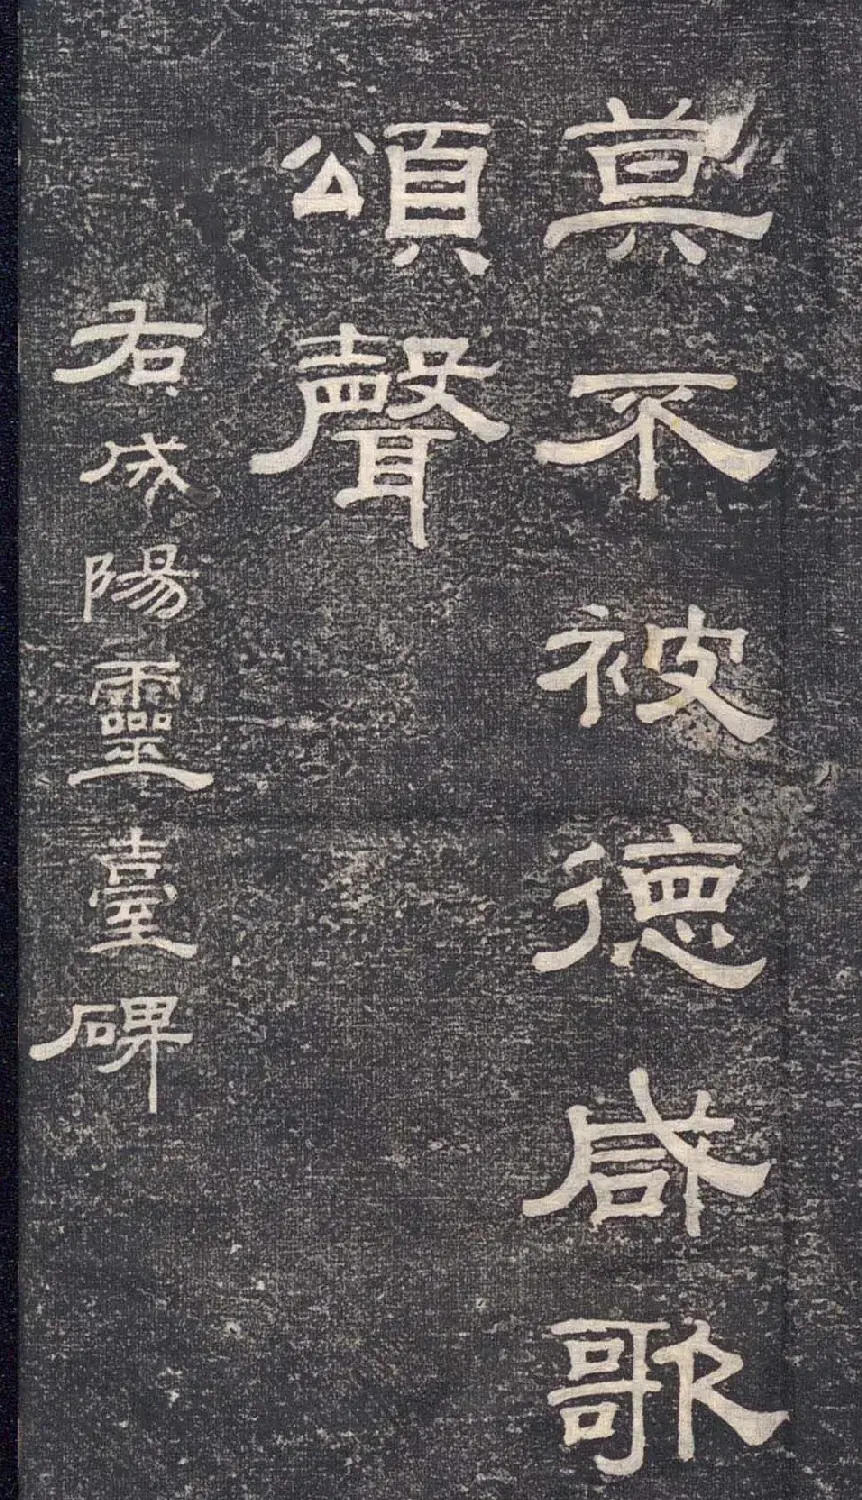 莫不被德咸歌
頌聲
右成陽靈臺碑